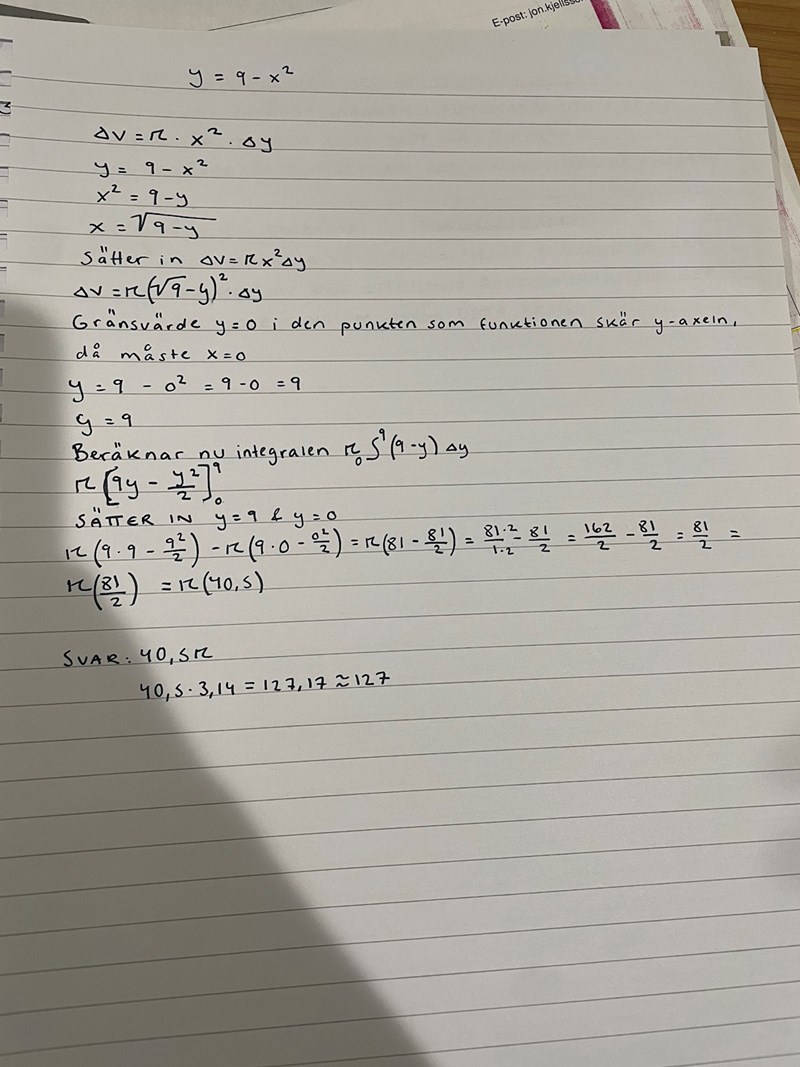 E-post: jon.kjellsso
y = 9 - x²
ΔV = π · x² · Δy
y = 9 - x²
x² = 9 - y
x = √9-y
Sätter in ΔV = π x² Δy
ΔV = π(√9-y)² · Δy
Gränsvärde y=0 i den punkten som funktionen skär y-axeln,
då måste x=0
y = 9 - 0² = 9-0 = 9
y = 9
Beräknar nu integralen π ₀∫⁹ (9-y) Δy
π [9y - y²/2]⁹₀
SÄTTER IN y=9 & y=0
π (9·9 - 9²/2) - π (9·0 - 0²/2) = π(81 - 81/2) = 81·2/1·2 - 81/2 = 162/2 - 81/2 = 81/2 =
π(81/2) = π(40,5)
SVAR: 40,5π
40,5·3,14 = 127,17 ≈ 127